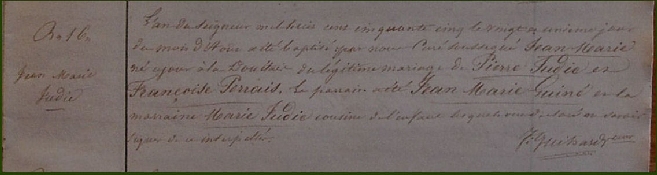 B. 16.
Jean Marie
Judic
L'an du Seigneur mil huit cent cinquante cinq le vingt et unième jour
du mois d'Août a été baptisé par nous Curé soussigné Jean Marie
né ce jour à la du légitime mariage de Pierre Judic et
Françoise Perrais. Le parrain a été Jean Marie Guiné et la
marraine Marie Judic cousine de l'enfant lesquels ont déclaré ne savoir
signer de ce interpellés.